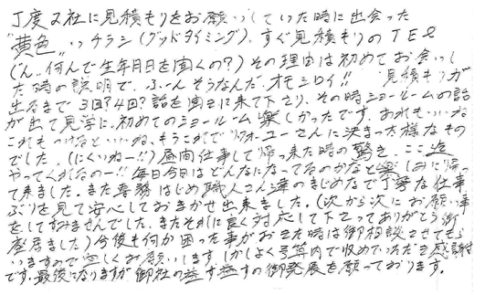 丁度2社に見積もりをお願いしていた時に出会った
"黄色"いチラシ(グッドタイミング)、すぐ見積もりのTEL
(ん、何んで生年月日を聞くの?)その理由は初めてお会いし
た時の説明で、ふーんそうなんだ、オモシロイ!! 見積もりが
出るまで3回?4回?話を聞きに来て下さり、その時ショールームの話
が出て見学に、初めてのショールーム楽しかったです。あれもいいね
これもつけるといいね、もうこれで ユーさんに決まった様なもの
でした。(にくいねー!!)昼間仕事して帰って来た時の驚き、ここ迄
やってくれるのー!!毎日今日はどんなになってるのかなと楽しみに帰っ
て来ました。また専務はじめ職人さん達のまじめなで丁寧な仕事
ぶりを見て安心しておまかせ出来ました。(次から次にお願い事
をしてすみませんでした。またそれに良く対応して下さってありがとう御
座居ました)今後も何か困った事がおきた時は御相談させてもら
いますので宜しくお願いします。しかしよく予算内で収めていただき感謝
です。最後になりますが御社の益す益すの御発展を願っております。